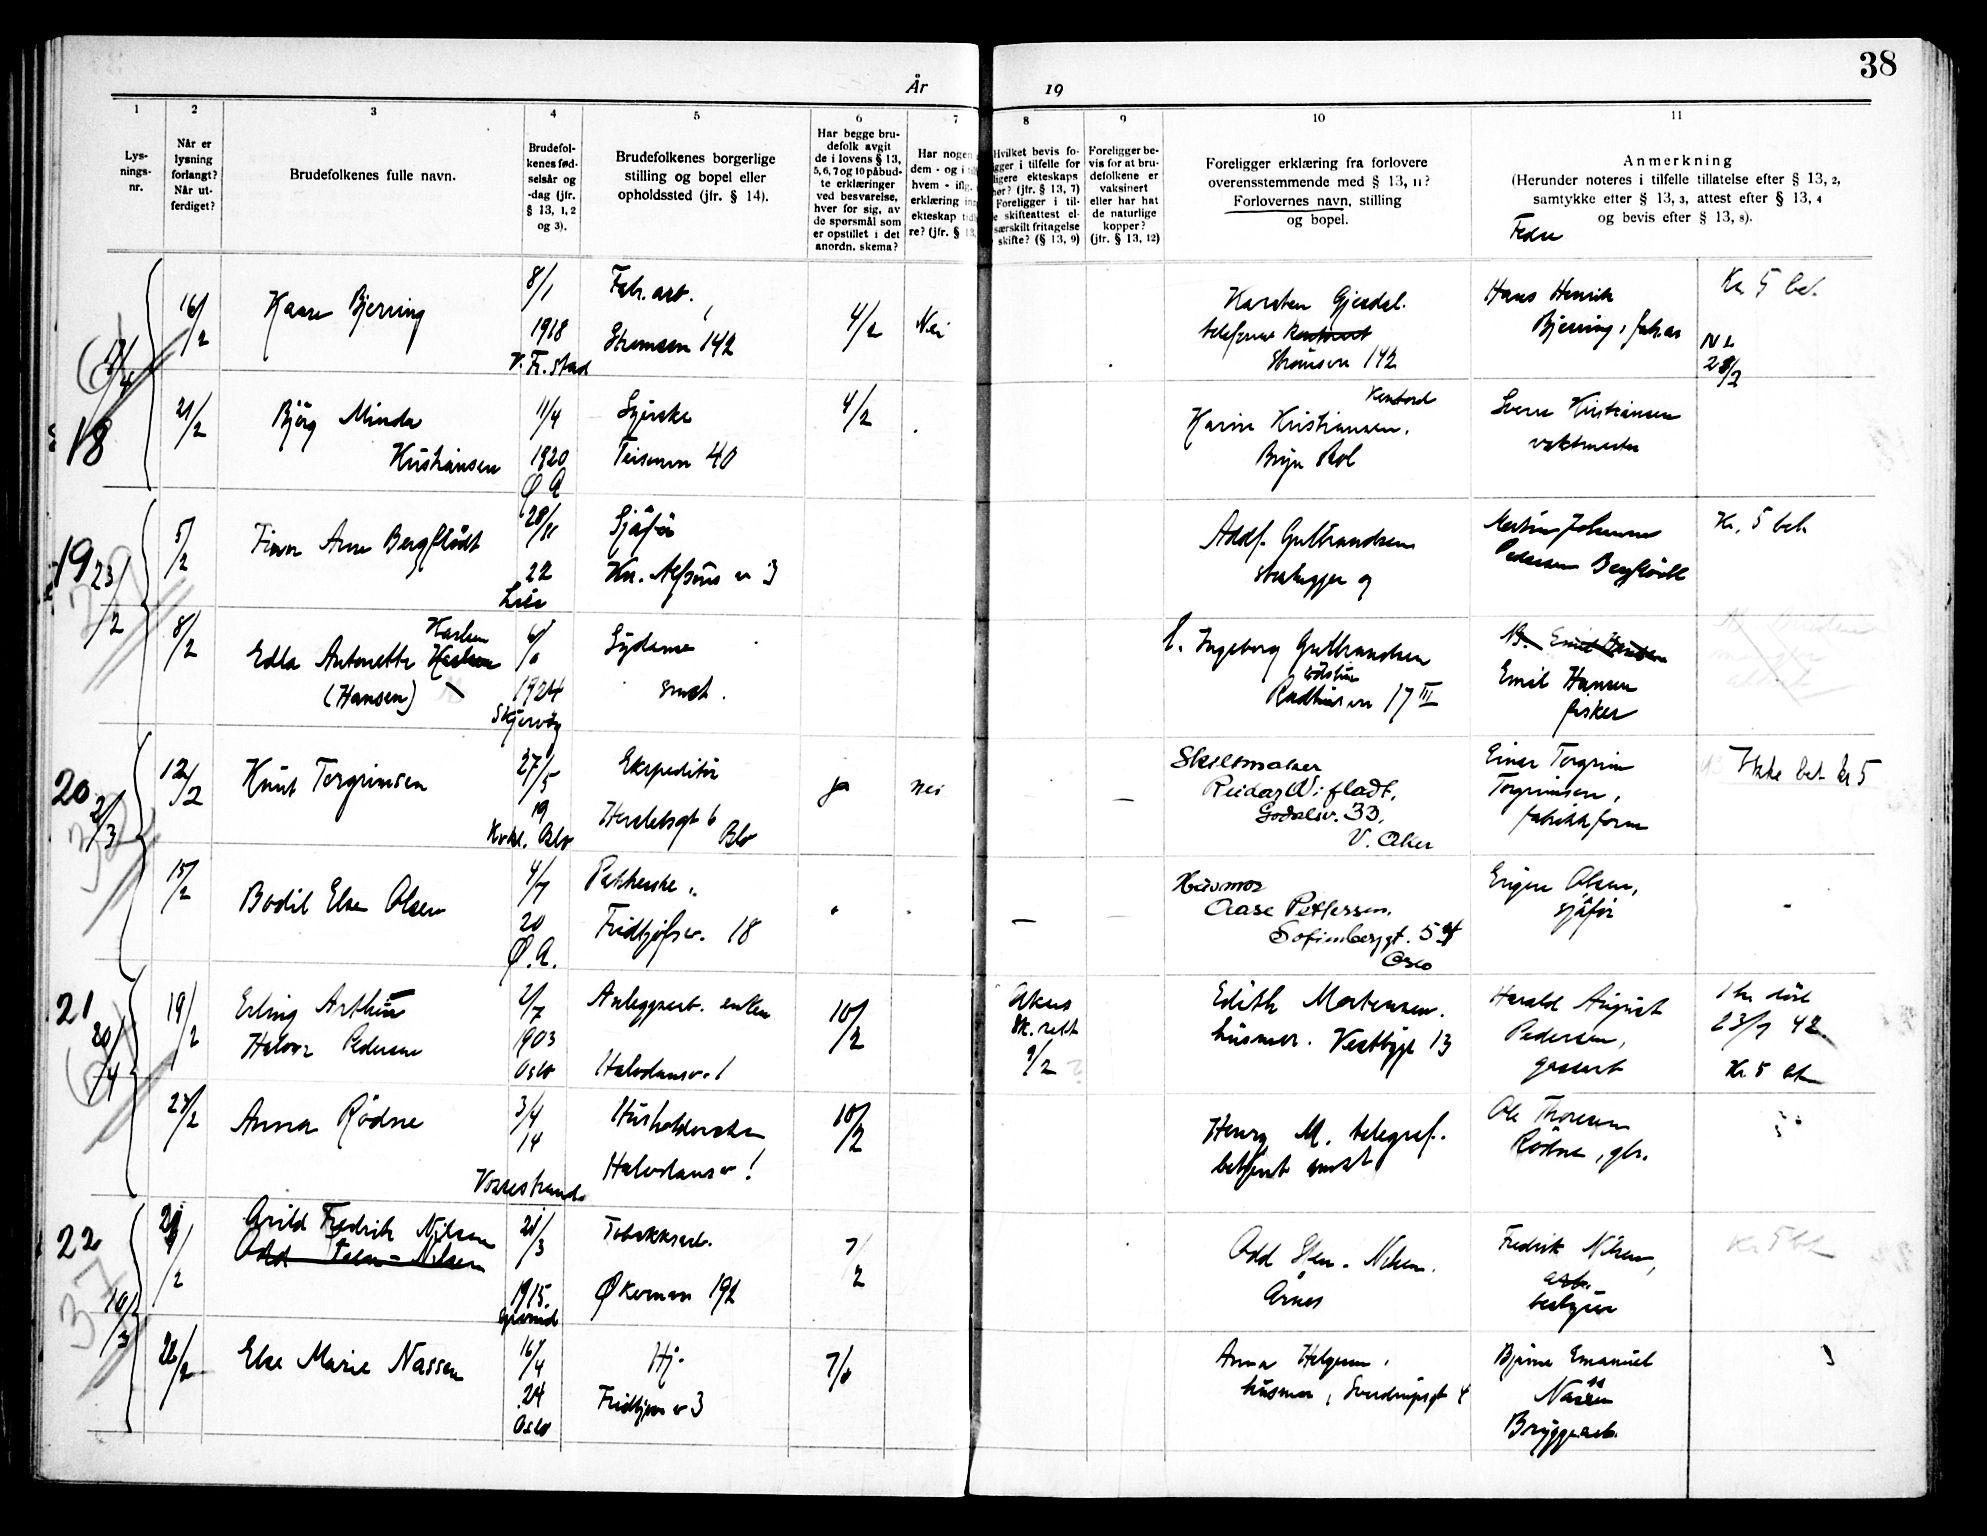 38
År 19
1 2 3 4 5 6 7 8 9 10 11
Lys-
nings-
nr.
Når er
lysning
forlangt?
Når ut-
ferdiget?
Brudefolkenes fulle navn.
Brudefol-
kenes fød-
selsår og
-dag (jfr.
§ 13, 1, 2
og 3).
Brudefolkenes borgerlige
stilling og bopel eller
opholdssted (jfr. § 14).
Har begge bru-
defolk avgit
de i lovens § 13,
5, 6, 7 og 10 påbud-
te erklæringer
ved besvarelse,
hver for sig, av
de spørsmål som
er opstillet i det
anordn. skema?
Har nogen
dem - og i
hvem - iflg.
erklæring
ekteskap
re? (jfr. § 13,
Hvilket bevis fo-
gger i tilfelle for
ligere ekteskaps
hør? (jfr. § 13, 7)
Foreligger i til-
e skifteattest el-
særskilt fritagelse
skifte? (§ 13, 9)
Foreligger be-
vis for at bru-
defolkene er
vaksinert
eller har hat
de naturlige
kopper?
(jfr. § 13, 12)
Foreligger erklæring fra forlovere
overensstemmende med § 13, 11?
Forlovernes navn, stilling
og bopel.
Anmerkning
(Herunder noteres i tilfelle tillatelse efter § 13, 2,
samtykke efter § 13, 3, attest efter § 13, 4
og bevis efter § 13, 8).
18
16/2
Kaare Bjerring
8/1
1918
V. Fr.stad
Fabr.arb.
Strømsvn 142
4/2
Nei
Karsten Gjesdal.
Strømsvn 142
Hans Henrik
Bjerring, fabr.ar
Kr 5 bet.
21/2
Bjørg Minda
Kristiansen
11/4
1920
Ø A
Syerske
Teisenvn 40
4/2
Karin Kristiansen.
Bryn Skol
Sverre Kristiansen
vaktmester
19
23/2
5/2
Finn Arne Bergflödt
28/11
22
Lier
Sjåfør
Kr. Alfsens v 3
Adolf Gulbrandsen
Martin Johannes
Pedersen Bergflödt
Kr. 5 bet.
8/2
Edla Antonette Karlsen
(Hansen)
6/
1924
Skjervøy
Sydame
smst.
Ingeborg Gulbrandsen
Rådhusvn 17 III
Emil Hansen
fisker
20
2/3
12/2
Knut Torgrimsen
27/5
19
Oslo
Ekspeditør
Herslebsgt 6
Oslo
ja
nei
Skiltmaker
Reidar Wifladt,
Godalsv. 33,
V. Aker
Einar Torgrim
Torgrimsen,
fabrikkform
Ikke bet kr 5
15/2
Bodil Else Olsen
4/7
20
Ø. A.
Pakkerske.
Fridtjofsv. 18
Husmor
Aase Pettersen.
Sofienberggt. 5
Oslo
Olsen,
sjåfør
21
20/4
19/2
Erling Arthur
Halvor Pedersen
2/7
1903
Oslo
Anleggsarb. enkem
Halvdansv. 1
10/2
Akers
Sk.rett
9/2
Edith Mortensen.
husmor. Vestbygt 13
Harald August
Pedersen,
gassarb
1 kr. död
23/7 42
Kr 5 bet
Anna Rödne
3/4
14
Vossestrand
Husholderske
Halvdansv 1
10/2
Henry M. telegraf.
betjent smst
Ole Thoresen
Rödne, gbr.
22
10/3
Arild Fredrik Nilsen
21/3
1915.
Tobakksarb.
Økernvn 192
7/2
Odd Sten-Nilsen.
Årnes
Fredrik Nilsen,
arb.
bestyrer
Kr 5 bet
Else Marie Nassen
16/4
24
Oslo
Hj.
Fridtjovs v 3
Anna Helgesen,
husmor, Sverdrupsgt 4
Bjarne Emanuel
Nassen
Bryggearb.